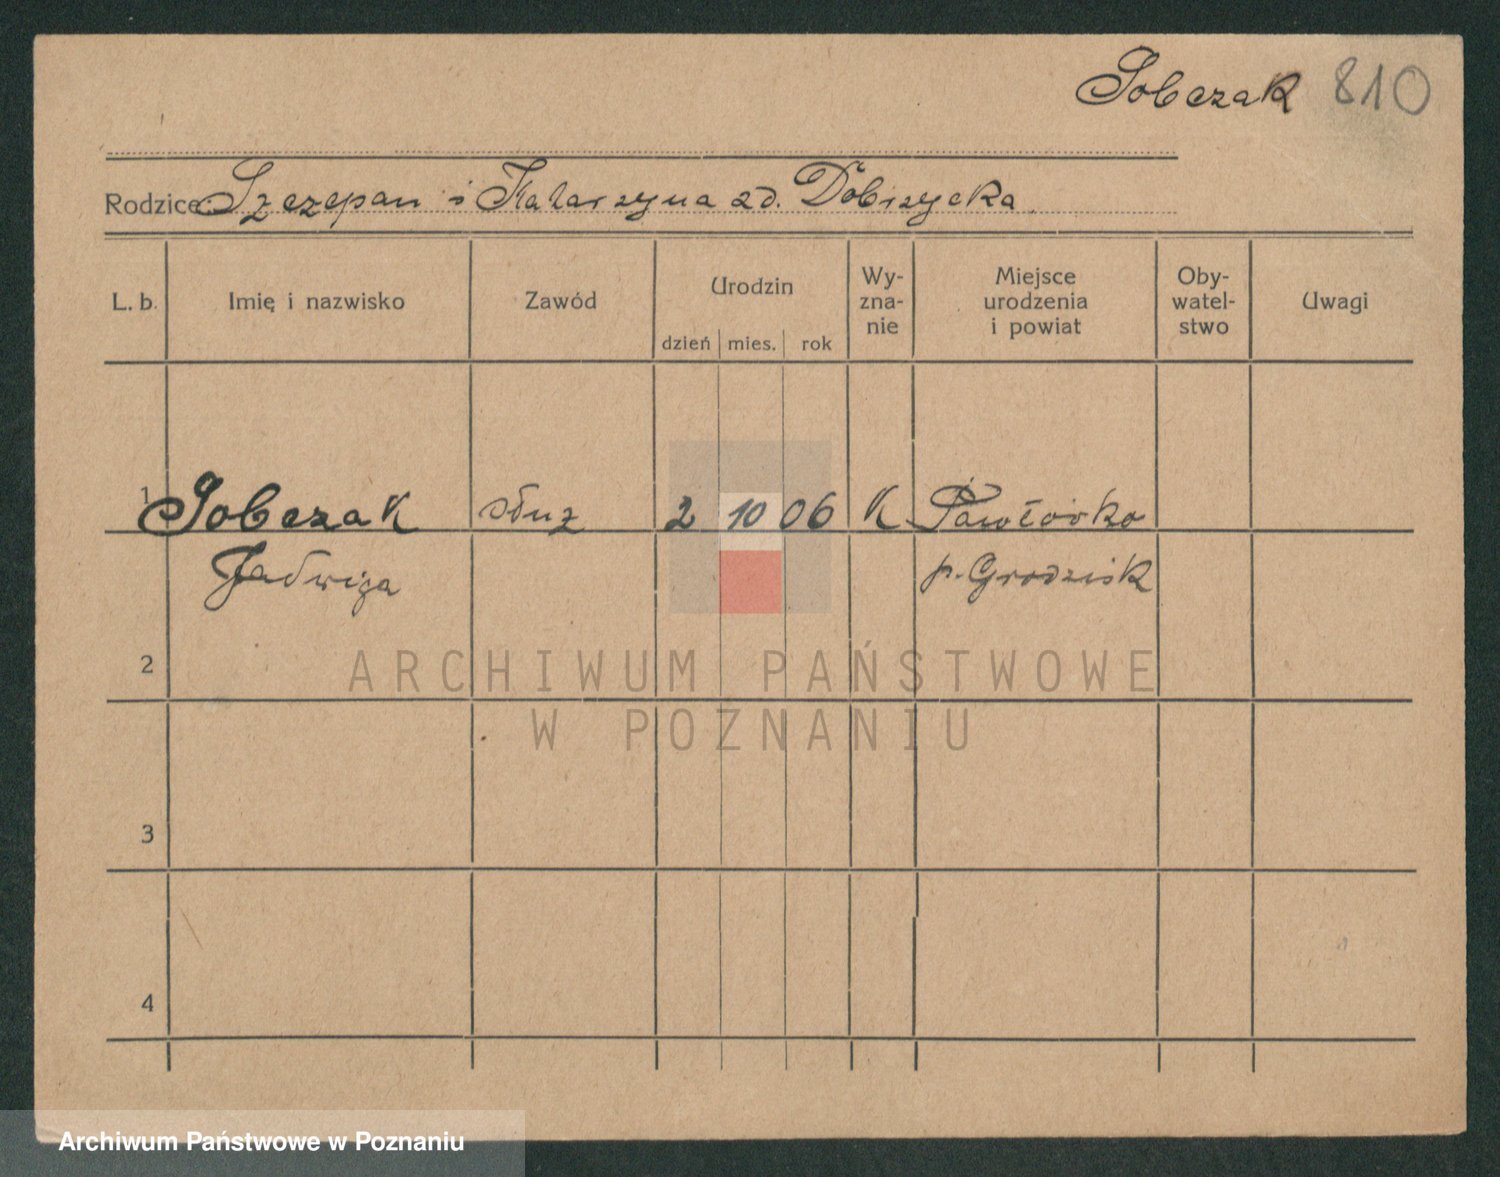 Sobczak 810
Rodzice: Szczepan i Katarzyna zd. Dobrzycka
L. b. Imię i nazwisko Zawód Urodzin Wy-zna-nie Miejsce urodzenia i powiat Oby-watel-stwo Uwagi
dzień mies. rok
1 Sobczak służ 2 10 06 K Pawłówko
Jadwiga p. Grodzisk
2
ARCHIWUM PAŃSTWOWE
W POZNANIU
3
4
Archiwum Państwowe w Poznaniu